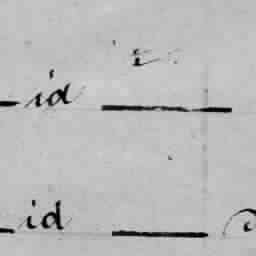 id
id